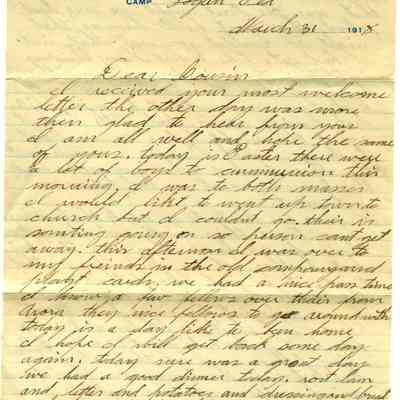 CAMP
March 31 1918
Dear Cousin
I received your most welcome
letter the other day was more
then glad to hear from you
I am all well and hope the same
of yours. today is Easter there were
a lot of boys to communion this
morning. I was to both masses
I would like to went up town to
church but I couldnt go. their is
somting going on so person cant get
away. this afternoon I was over to
my friends in the old company and
playt cards, we had a nice pass time
I know a few fellows over their from
they nice fellows to go around with
today is a day like to ben home
I hope I will get back some day
again. today sure was a great day
we had a good dinner today.
and and potatoes and dressing and bread